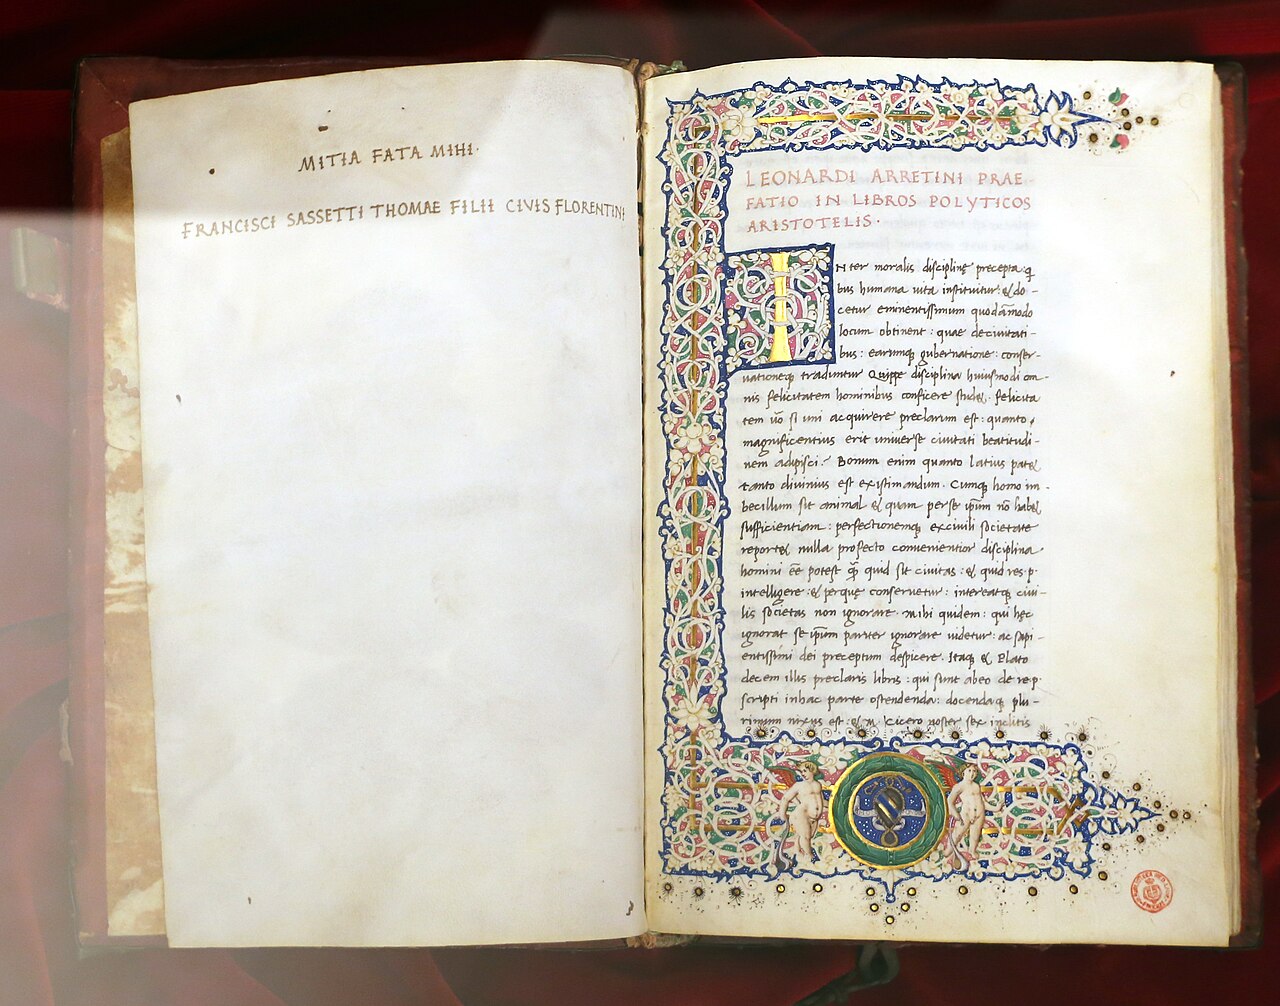 MITIA FATA MIHI·
FRANCISCI SASSETTI THOMAE FILII CIVIS FLORENTINI
LEONARDI ARRETINI PRAE-
FATIO IN LIBROS POLYTICOS
ARISTOTELIS·
INter moralis disciplinę precepta: q
bus humana uita instituitur: & do-
cetur eminentissimum quodāmodo
locum obtinent: quae deciuitati-
bus: earumq; gubernatione: conser-
uationeq; traduntur Quippe disciplina huiusmodi om-
nis felicitatem hominibus conficere stud&. felicita
tem uō si uni acquirere preclarum est: quanto
magnificentius erit uniuerse ciuitati beatitudi-
nem adipisci? Bonum enim quanto latius pat&
tanto diuinius est existimandum. Cumq; homo im-
becillum sit animal & quam per se ipsum nō hab&
sufficientiam: perfectionemq; exciuili societate
report& nulla profecto conuenientior disciplina
homini eē potest q̄ quid sit ciuitas: & quid res·p·
intelligere: & perque conseruetur: intereatq; ciui-
lis societas non ignorare. Mihi quidem: qui hęc
ignorat se ipsum pariter ignorare uidetur: ac sapi-
entissimi dei preceptum despicere. Itaq; & Plato
decem illis preclaris libris: qui sunt abeo de re·p·
scripti inhac parte ostendenda: docendaq; plu-
rimum nixus est: & M. Cicero noster sex inclitis